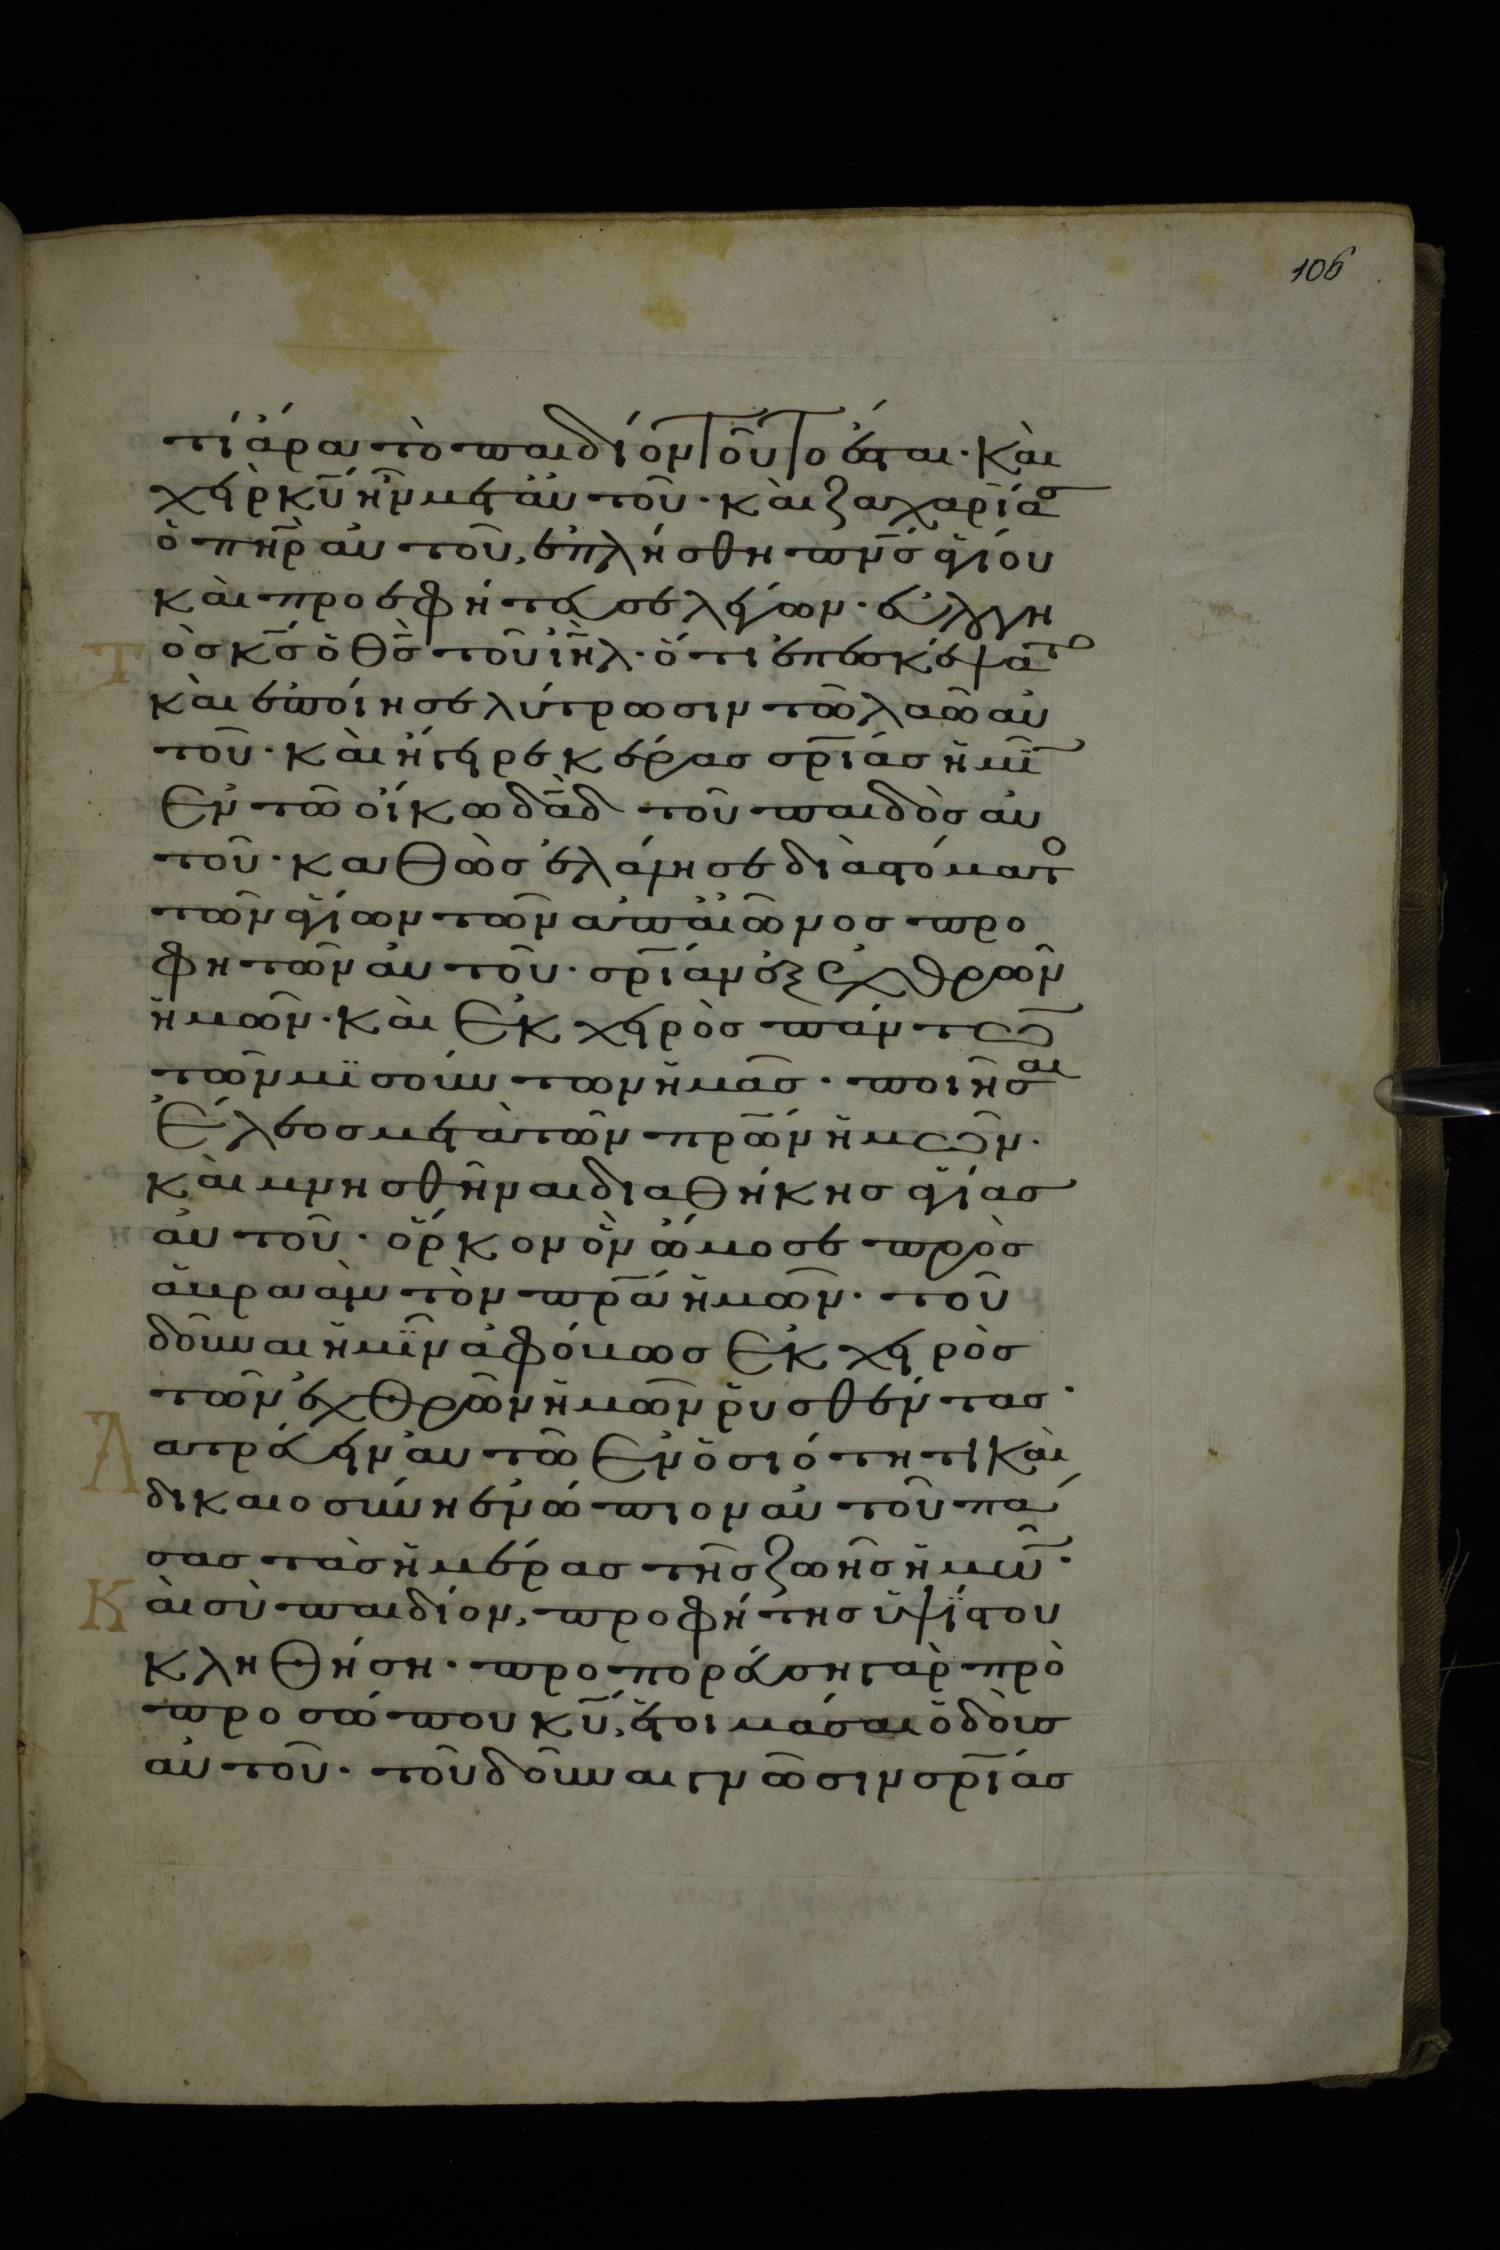 106
τί ἄρα τὸ παιδίον τοῦτο ἔσται· καὶ
χεὶρ κ̅υ̅ ἦν μετ' αὐτοῦ· καὶ ζαχαρίας
ὁ π̅η̅ρ̅ αὐτοῦ, ἐπλήσθη π̅ν̅ς̅ ἁγίου
καὶ προεφήτευσε λέγων· εὐλογη
τὸς κ̅ς̅ ὁ θ̅ς̅ τοῦ ι̅η̅λ̅· ὅτι ἐπεσκέψατο
καὶ ἐποίησε λύτρωσιν τῶ λαῶ αὐ
τοῦ· καὶ ἤγειρε κέρας σ̅ρ̅ιας ἡμῖ
ἐν τῶ οἴκω δ̅α̅δ̅ τοῦ παιδὸς αὐ
τοῦ· καθὼς ἐλάλησε διὰ στόματο
τῶν ἁγίων τῶν ἀπ' αἰῶνος προ
φητῶν αὐτοῦ· σ̅ρ̅ίαν ἐξ ἐχθρῶν
ἡμῶν· καὶ ἐκ χειρὸς πάντω
τῶν μισούντων ἡμᾶς· ποιῆσαι
ἔλεος μετὰ τῶν π̅ρ̅ων ἡμῶν·
καὶ μνησθῆναι διαθήκης ἁγίας
αὐτοῦ· ὅρκον ὃν ὤμοσε πρὸς
ἁβραὰμ τὸν π̅ρ̅α ἡμῶν· τοῦ
δοῦναι ἡμῖν ἀφόβως ἐκ χειρὸς
τῶν ἐχθρῶν ἡμῶν ῥυσθέντας·
Λατρεύειν αὐτῶ ἐν ὁσιότητι καὶ
δικαιοσύνη ἐνώπιον αὐτοῦ πά
σας τὰς ἡμέρας τῆς ζωῆς ἡμῶ·
Καὶ σὺ παιδίον, προφήτης ὑψίστου
κληθήση· προπορεύση γὰρ πρὸ
προσώπου κ̅υ̅, ἑτοιμάσαι ὁδοὺς
αὐτοῦ· τοῦ δοῦναι γνῶσιν σ̅ρ̅ίας